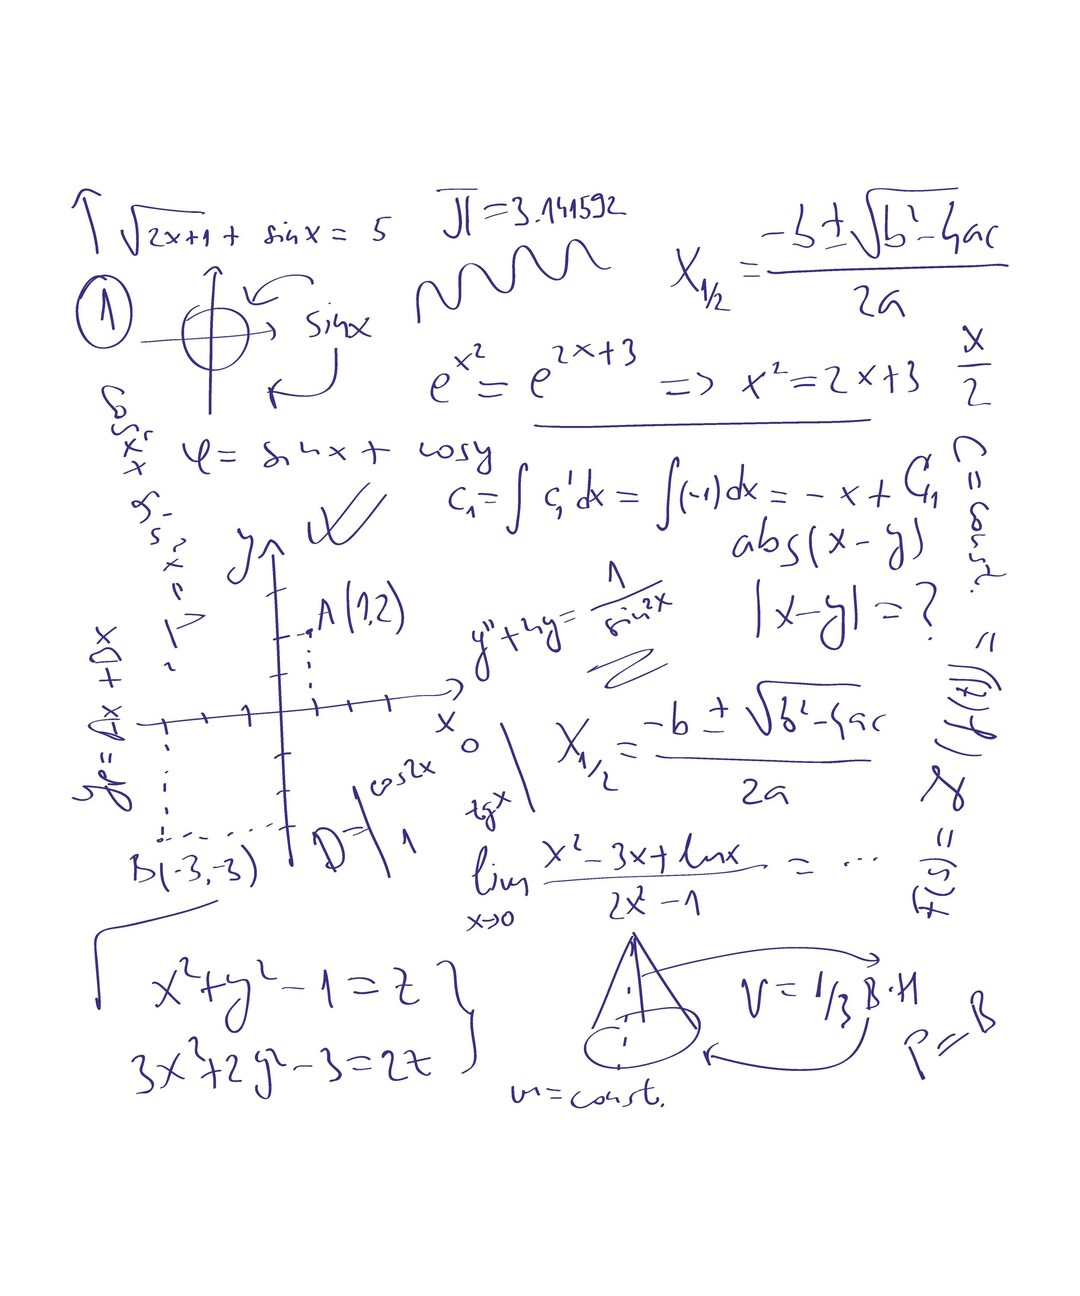 √2x+1 + sinx = 5
π = 3.141592
x₁/₂ = (-b ± √b²-4ac) / 2a
1
sinx
e^x² = e^2x+3 => x² = 2x+3
x/2
φ = sinx + cosy
C₁ = ∫ C₁' dx = ∫(-1)dx = -x + C₁
abs(x-y)
y
A(1,2)
y'' + 4y = 1/sin2x
|x-y| = ?
1
x
x₁/₂ = (-b ± √b²-4ac) / 2a
D = | cos2x 0
1 tgx |
B(-3,-3)
lim x→0 (x² - 3x + lnx) / (2x² - 1) = ...
x² + y² - 1 = z
3x² + 2y² - 3 = 2z
V = 1/3 B·H
P = B
m = const.